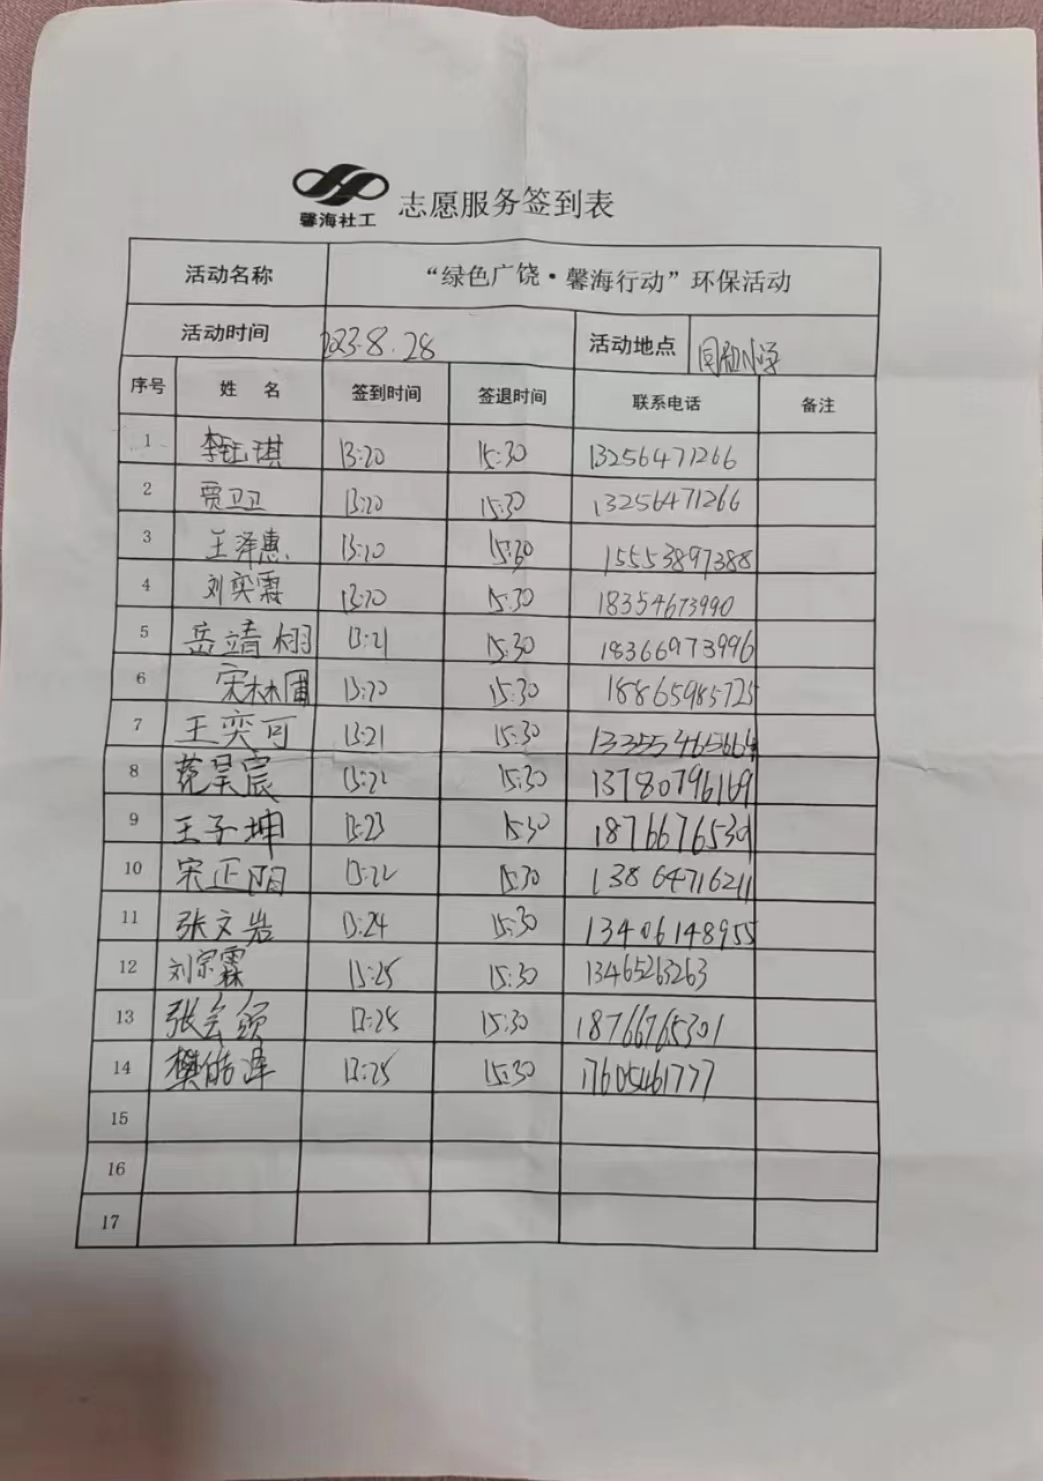 馨海社工
志愿服务签到表
活动名称 “绿色广饶·馨海行动”环保活动
活动时间 2023.8.28 活动地点 同和小学
序号 姓 名 签到时间 签退时间 联系电话 备注
1 李钰琪 13:20 15:30 13256471266
2 贾卫卫 13:20 15:30 13256471266
3 王泽惠 13:20 15:30 15553897388
4 刘奕霖 13:20 15:30 18354673990
5 岳靖栩 13:21 15:30 18366973996
6 宋林圃 13:20 15:30 18865985725
7 王奕可 13:21 15:30
8 13:22 15:30 13780796169
9 王子坤 13:23 15:30 18766765301
10 宋正阳 13:22 15:30 13864716211
11 张文岩 13:24 15:30 13406148955
12 刘宗霖 13:25 15:30 13465263263
13 张会颂 13:25 15:30 18766765301
14 樊皓泽 13:25 15:30 17605461777
15
16
17